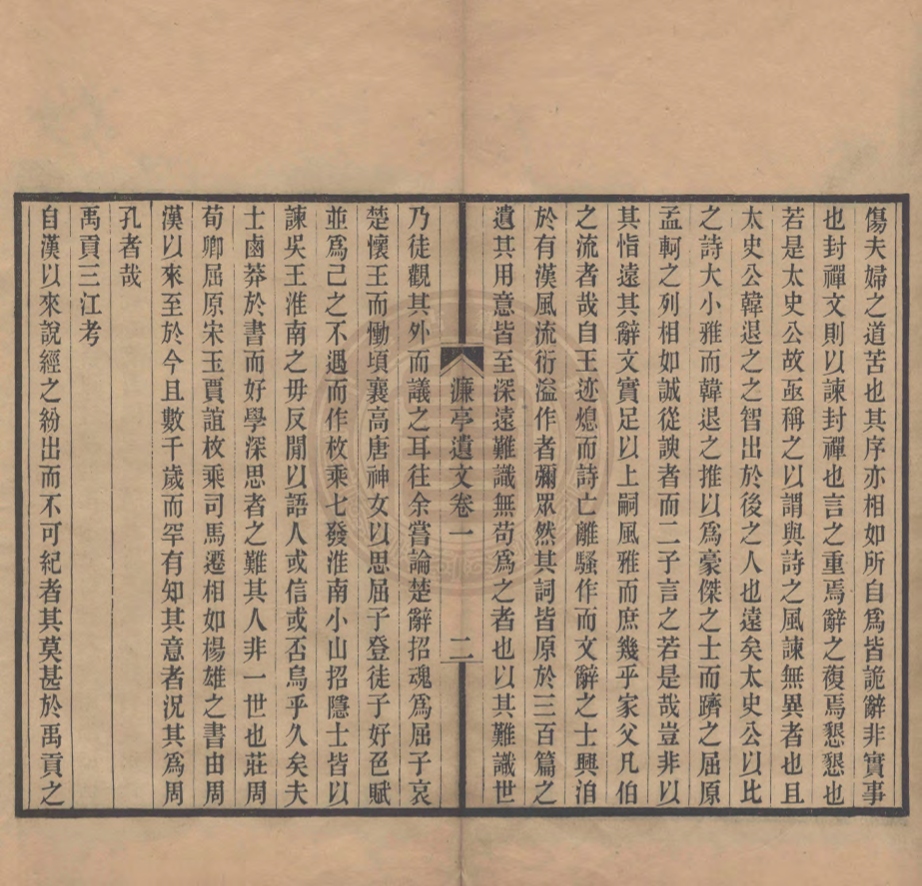 傷夫婦之道苦也其序亦相如所自爲皆詭辭非實事
也封禪文則以諫封禪也言之重焉辭之複焉懇懇也
若是太史公故亟稱之以謂與詩之風諫無異者也且
太史公韓退之之智出於後之人也遠矣太史公以比
之詩大小雅而韓退之推以爲豪傑之士而躋之屈原
孟軻之列相如誠從諛者而二子言之若是哉豈非以
其恉遠其辭文實足以上嗣風雅而庶幾乎家父凡伯
之流者哉自王迹熄而詩亡離騷作而文辭之士興洎
於有漢風流衍溢作者彌眾然其詞皆原於三百篇之
遺其用意皆至深遠難識無苟爲之者也以其難識世
濂亭遺文卷一 二
乃徒觀其外而議之耳往余嘗論楚辭招魂爲屈子哀
楚懷王而慟頃襄高唐神女以思屈子登徒子好色賦
並爲己之不遇而作枚乘七發淮南小山招隱士皆以
諫吳王淮南之毋反閒以語人或信或否烏乎久矣夫
士鹵莽於書而好學深思者之難其人非一世也莊周
荀卿屈原宋玉賈誼枚乘司馬遷相如楊雄之書由周
漢以來至於今且數千歲而罕有知其意者況其爲周
孔者哉
禹貢三江考
自漢以來說經之紛出而不可紀者其莫甚於禹貢之